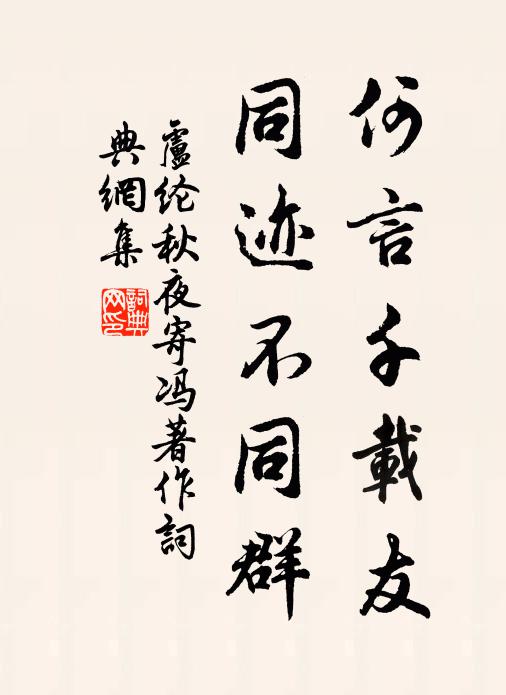 何言千載友
同迹不同群
盧纶秋夜寄冯著作詞
典網集
詞典
网印